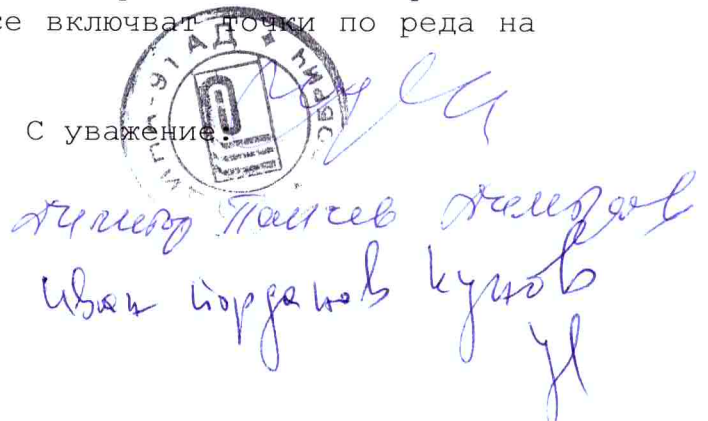 се включват точки по реда на
АД
С уважение:
Димитър Панчев Димитров
Иван Йорданов Кунов